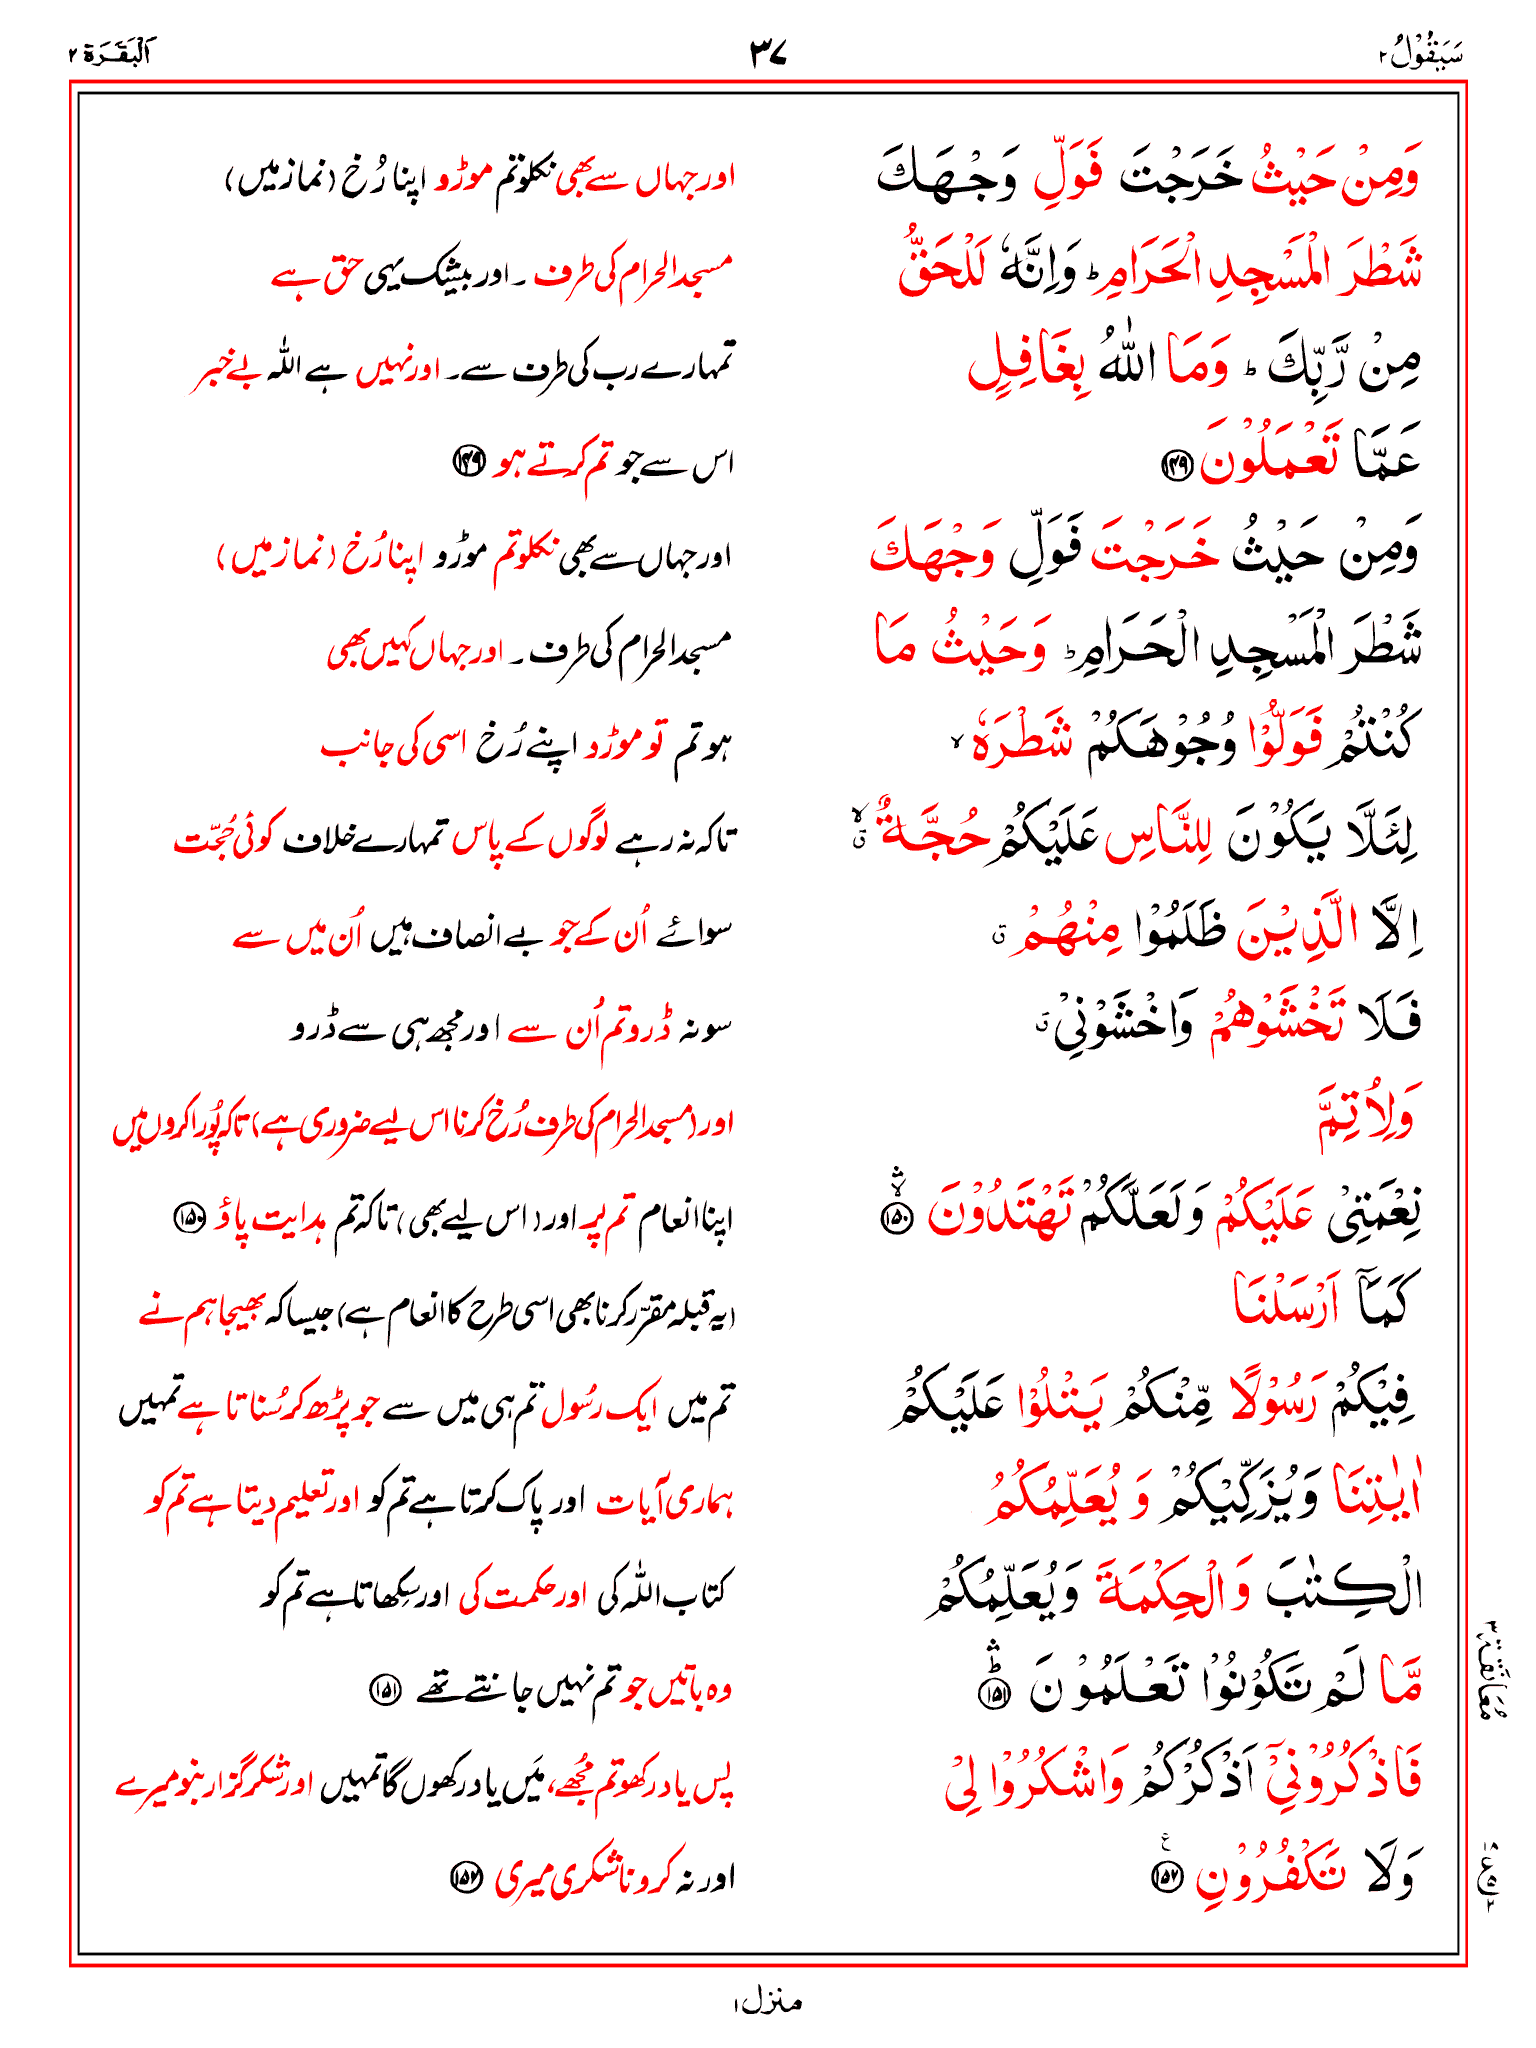 سَيَقُوْلُ ٢
٣٧
اَلْبَقَرَة ٢
وَمِنْ حَيْثُ خَرَجْتَ فَوَلِّ وَجْهَكَ
اور جہاں سے بھی نکلو تم موڑو اپنا رُخ (نماز میں)
شَطْرَ الْمَسْجِدِ الْحَرَامِ ؕ وَاِنَّهٗ لَلْحَقُّ
مسجد الحرام کی طرف ۔ اور بیشک یہی حق ہے
مِنْ رَّبِّكَ ؕ وَمَا اللّٰهُ بِغَافِلٍ
تمہارے رب کی طرف سے۔ اور نہیں ہے اللہ بے خبر
عَمَّا تَعْمَلُوْنَ ۝۱۴۹
اس سے جو تم کرتے ہو ۝۱۴۹
وَمِنْ حَيْثُ خَرَجْتَ فَوَلِّ وَجْهَكَ
اور جہاں سے بھی نکلو تم موڑو اپنا رُخ (نماز میں)
شَطْرَ الْمَسْجِدِ الْحَرَامِ ؕ وَحَيْثُ مَا
مسجد الحرام کی طرف ۔ اور جہاں کہیں بھی
كُنْتُمْ فَوَلُّوْا وُجُوْهَكُمْ شَطْرَهٗ ۙ
ہو تم تو موڑو اپنے رُخ اسی کی جانب
لِئَلَّا يَكُوْنَ لِلنَّاسِ عَلَيْكُمْ حُجَّةٌ ۙۗ
تاکہ نہ رہے لوگوں کے پاس تمہارے خلاف کوئی حُجّت
اِلَّا الَّذِيْنَ ظَلَمُوْا مِنْهُمْ ۗ
سوائے اُن کے جو بے انصاف ہیں اُن میں سے
فَلَا تَخْشَوْهُمْ وَاخْشَوْنِيْ ۗ
سو نہ ڈرو تم اُن سے اور مجھ ہی سے ڈرو
وَلِاُتِمَّ
اور (مسجد الحرام کی طرف رُخ کرنا اس لیے ضروری ہے) تاکہ پُورا کروں میں
نِعْمَتِيْ عَلَيْكُمْ وَلَعَلَّكُمْ تَهْتَدُوْنَ ۝۱۵۰ ۙۛ
اپنا انعام تم پر اور (اس لیے بھی) تاکہ تم ہدایت پاؤ ۝۱۵۰
كَمَآ اَرْسَلْنَا
(یہ قبلہ مقرّر کرنا بھی اسی طرح کا انعام ہے) جیسا کہ بھیجا ہم نے
فِيْكُمْ رَسُوْلًا مِّنْكُمْ يَتْلُوْا عَلَيْكُمْ
تم میں ایک رسُول تم ہی میں سے جو پڑھ کر سُناتا ہے تمہیں
اٰيٰتِنَا وَيُزَكِّيْكُمْ وَيُعَلِّمُكُمُ
ہماری آیات اور پاک کرتا ہے تم کو اور تعلیم دیتا ہے تم کو
الْكِتٰبَ وَالْحِكْمَةَ وَيُعَلِّمُكُمْ
کتاب اللہ کی اور حکمت کی اور سِکھاتا ہے تم کو
مَّا لَمْ تَكُوْنُوْا تَعْلَمُوْنَ ۝۱۵۱ ؕۛ
وہ باتیں جو تم نہیں جانتے تھے ۝۱۵۱
فَاذْكُرُوْنِيْٓ اَذْكُرْكُمْ وَاشْكُرُوْا لِيْ
پس یاد رکھو تم مُجھے، مَیں یاد رکھوں گا تمہیں اور شکر گزار بنو میرے
وَلَا تَكْفُرُوْنِ ۝۱۵۲ ۧ
اور نہ کرو ناشکری میری ۝۱۵۲
معانقة ٣
منزل ۱